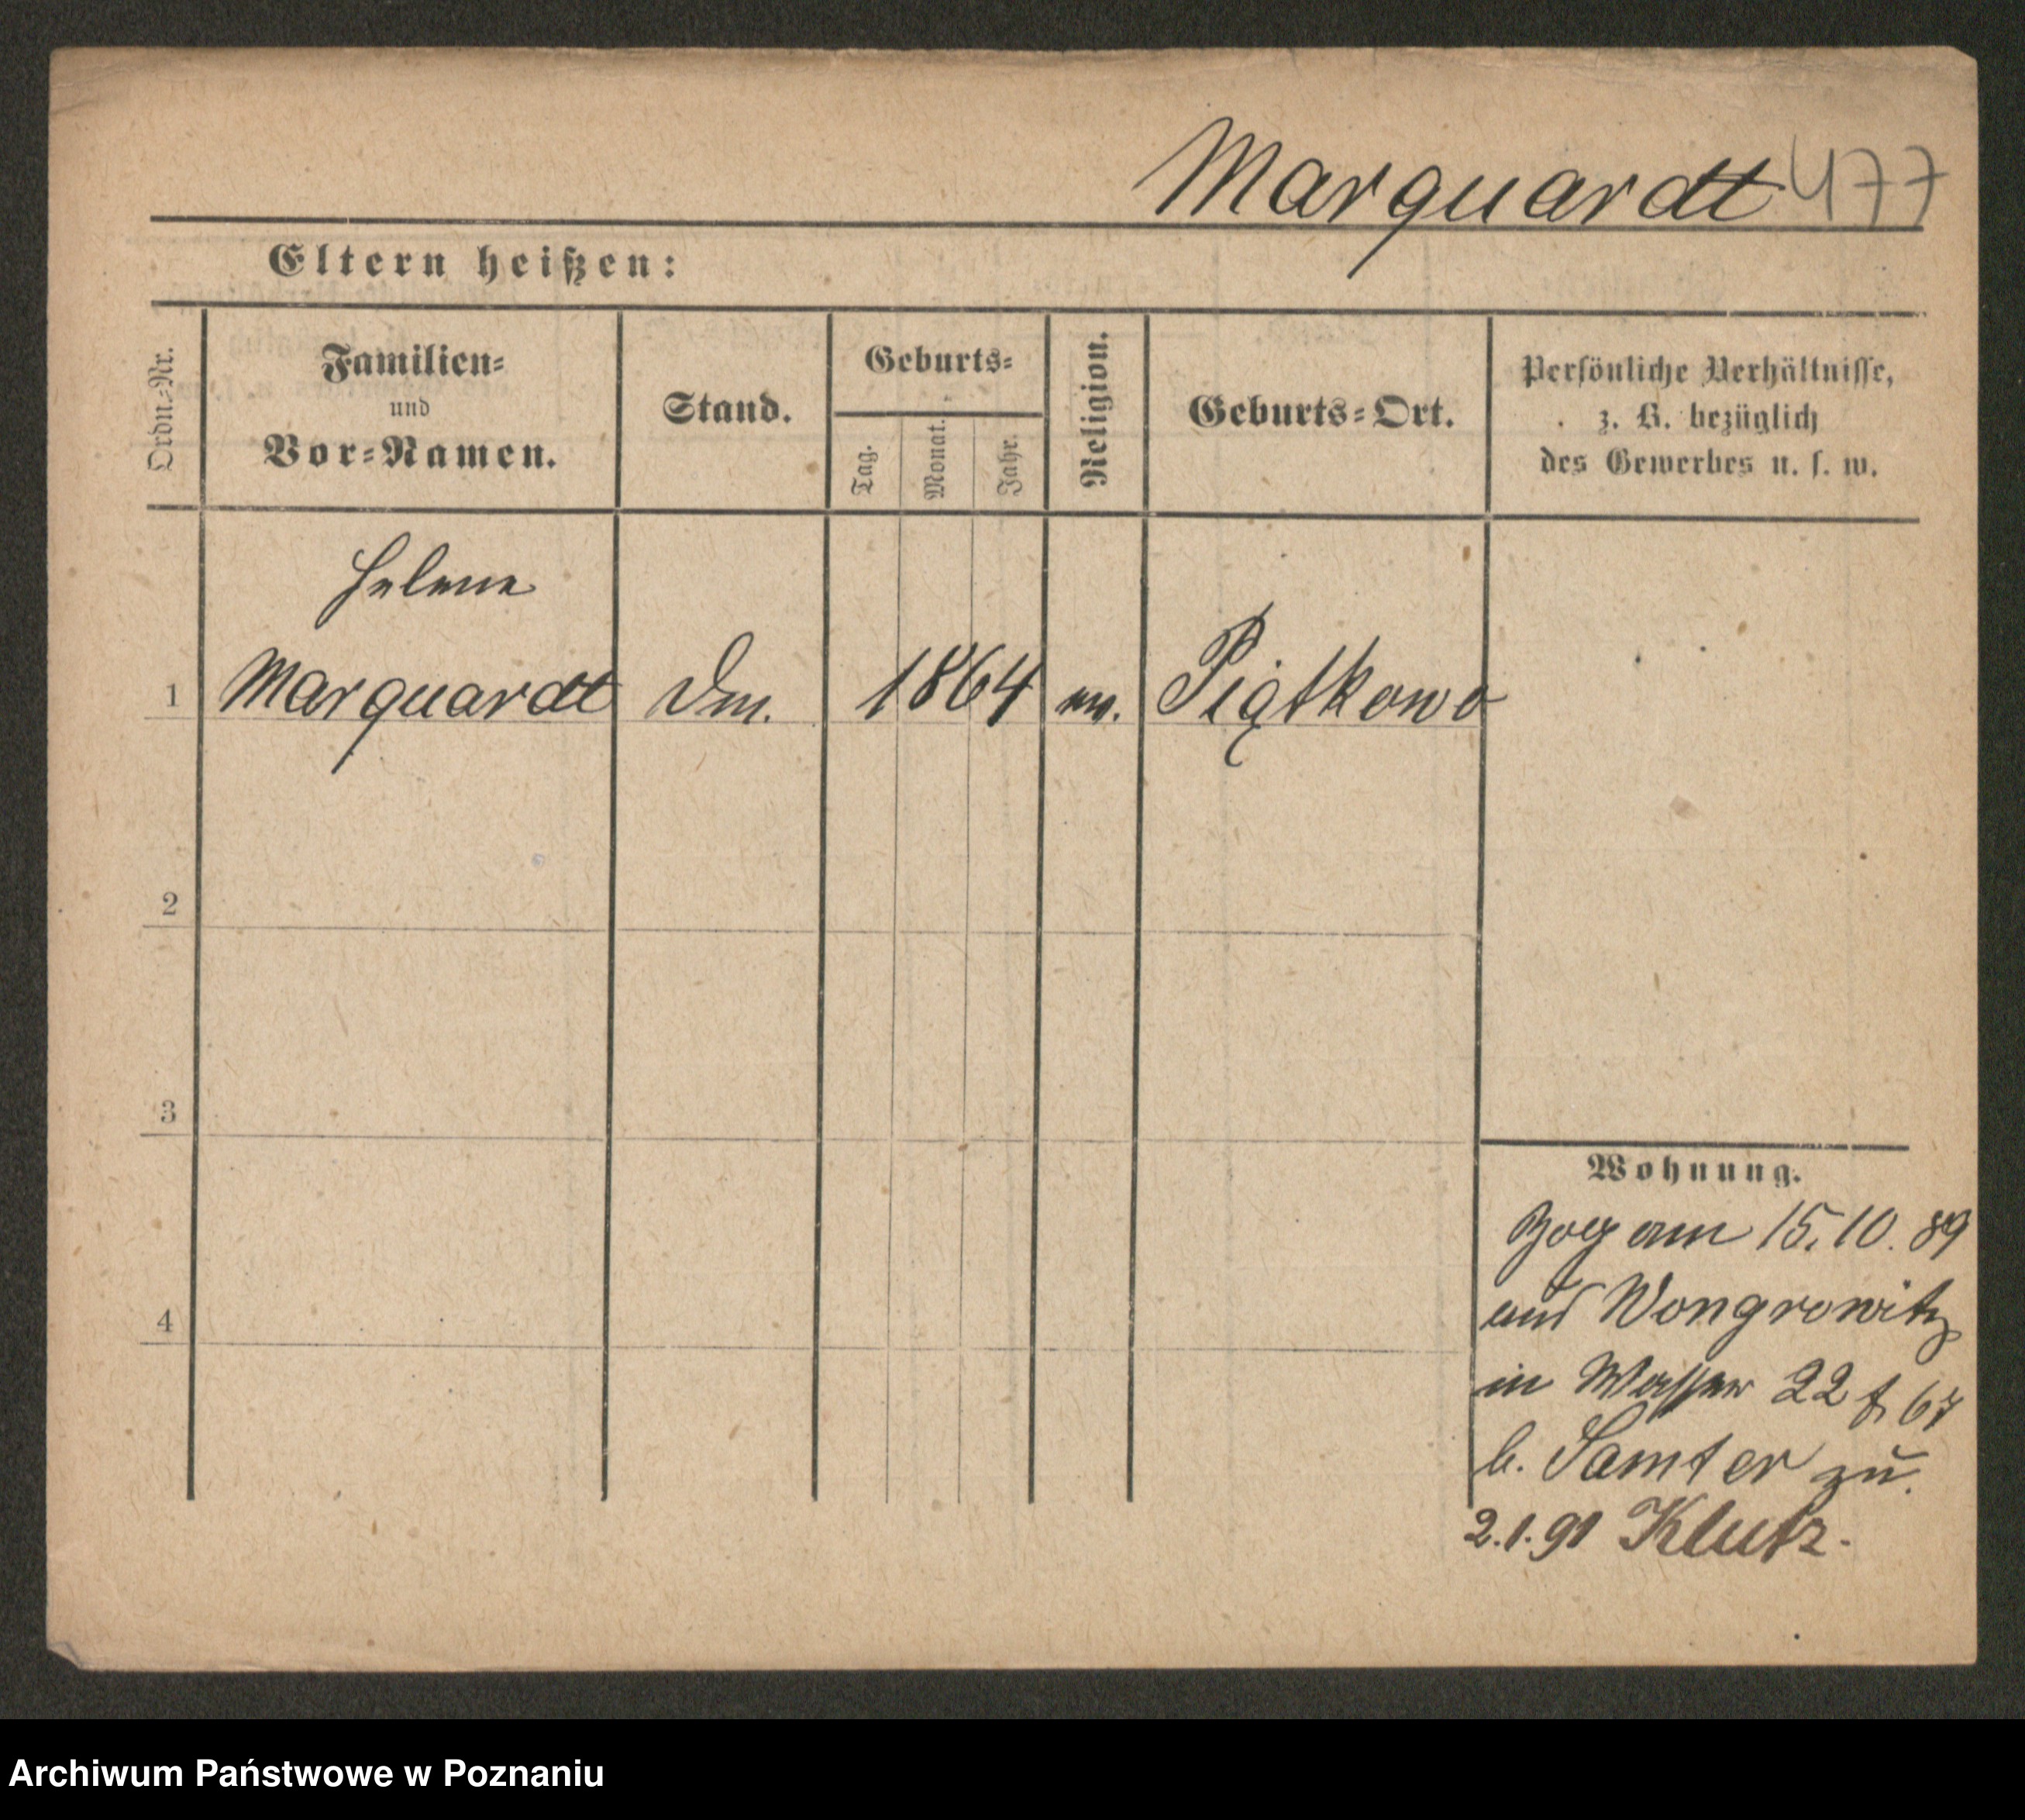 Marquardt 477
Eltern heißen:
Ordn.-Nr.
Familien-
und
Vor-Namen.
Stand.
Geburts-
Tag.
Monat.
Jahr.
Religion.
Geburts-Ort.
Persönliche Verhältnisse,
z. B. bezüglich
des Gewerbes u. s. w.
Helene
1 Marquardt 1864 ev. Piątkowo
2
3
4
Wohnung.
Zog am 15.10.89
aus Wongrowitz
in Wasser 22
b. Samter zu.
2.1.91 Klutz.
Archiwum Państwowe w Poznaniu